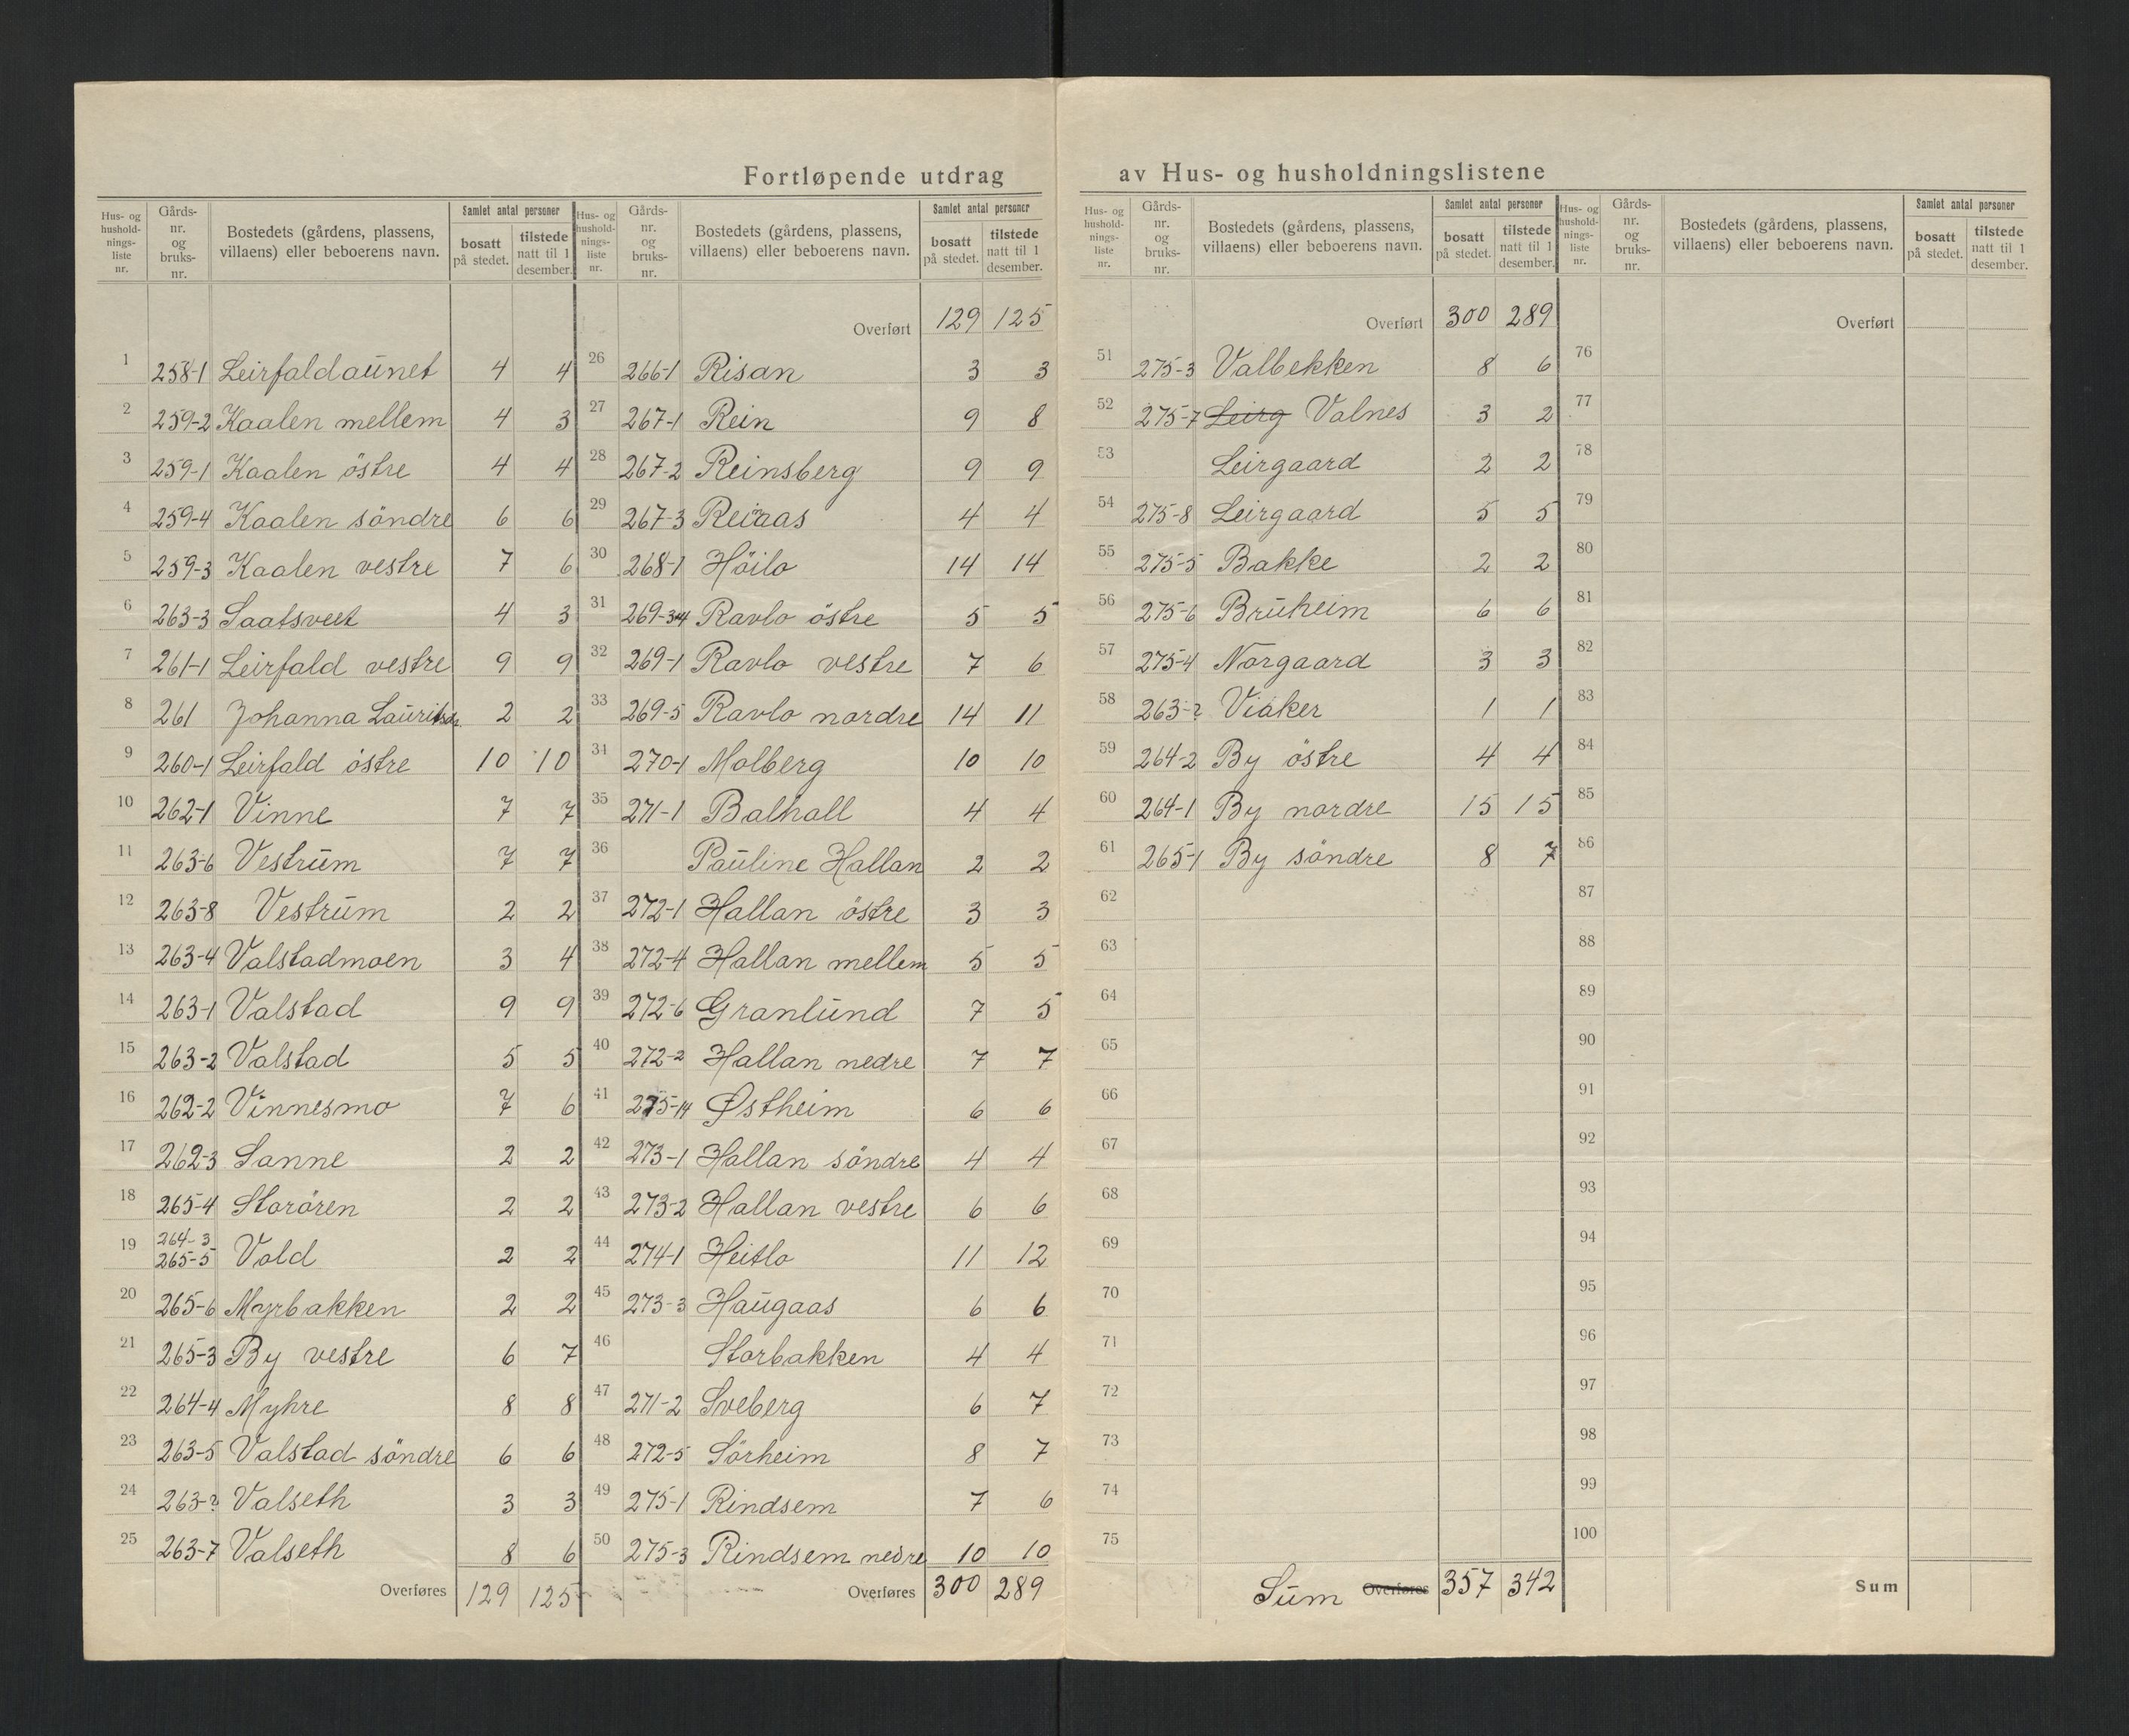 Fortløpende utdrag av Hus- og husholdningslistene
Hus- og hushold-nings-liste nr. Gårds-nr. og bruks-nr. Bostedets (gårdens, plassens, villaens) eller beboerens navn. Samlet antal personer bosatt på stedet. tilstede natt til 1 desember.
1 258-1 Leirfaldaunet 4 4
2 259-2 Kaalen mellem 4 3
3 259-1 Kaalen östre 4 4
4 259-4 Kaalen söndre 6 6
5 259-3 Kaalen vestre 7 6
6 263-3 Saatsveet 4 3
7 261-1 Leirfald vestre 9 9
8 261 Johanna 2 2
9 260-1 Leirfald östre 10 10
10 262-1 Vinne 7 7
11 263-6 Vestrum 7 7
12 263-8 Vestrum 2 2
13 263-4 Valstadmoen 3 4
14 263-1 Valstad 9 9
15 263-2 Valstad 5 5
16 262-2 Vinnesmo 7 6
17 262-3 Sanne 2 2
18 265-4 Storören 2 2
19 264-3 265-5 Vold 2 2
20 265-6 Myrbakken 2 2
21 265-3 By vestre 6 7
22 264-4 Myhre 8 8
23 263-5 Valstad söndre 6 6
24 263-? Valseth 3 3
25 263-7 Valseth 8 6
Overføres 129 125
Hus- og hushold-nings-liste nr. Gårds-nr. og bruks-nr. Bostedets (gårdens, plassens, villaens) eller beboerens navn. Samlet antal personer bosatt på stedet. tilstede natt til 1 desember.
Overført 129 125
26 266-1 Risan 3 3
27 267-1 Rein 9 8
28 267-2 Reinsberg 9 9
29 267-3 4 4
30 268-1 Höilo 14 14
31 269-3+4 Ravlo östre 5 5
32 269-1 Ravlo vestre 7 6
33 269-5 Ravlo nordre 14 11
34 270-1 Molberg 10 10
35 271-1 Balhall 4 4
36 Pauline Hallan 2 2
37 272-1 Hallan östre 3 3
38 272-4 Hallan mellem 5 5
39 272-6 Granlund 7 5
40 272-2 Hallan nedre 7 7
41 275-14 Østheim 6 6
42 273-1 Hallan söndre 4 4
43 273-2 Hallan vestre 6 6
44 274-1 Heitlo 11 12
45 273-3 Haugaas 6 6
46 Storbakken 4 4
47 271-2 Sveberg 6 7
48 272-5 Sörheim 8 7
49 275-1 Rindsem 7 6
50 275-3 Rindsem nedre 10 10
Overføres 300 289
Hus- og hushold-nings-liste nr. Gårds-nr. og bruks-nr. Bostedets (gårdens, plassens, villaens) eller beboerens navn. Samlet antal personer bosatt på stedet. tilstede natt til 1 desember.
Overført 300 289
51 275-3 Valbekken 8 6
52 275-7 Leirg Valnes 3 2
53 Leirgaard 2 2
54 275-8 Leirgaard 5 5
55 275-5 Bakke 2 2
56 275-6 Bruheim 6 6
57 275-4 Norgaard 3 3
58 263-? Viaker 1 1
59 264-2 By östre 4 4
60 264-1 By nordre 15 15
61 265-1 By söndre 8 7
62
63
64
65
66
67
68
69
70
71
72
73
74
75
Sum Overføres 357 342
Hus- og hushold-nings-liste nr. Gårds-nr. og bruks-nr. Bostedets (gårdens, plassens, villaens) eller beboerens navn. Samlet antal personer bosatt på stedet. tilstede natt til 1 desember.
Overført
76
77
78
79
80
81
82
83
84
85
86
87
88
89
90
91
92
93
94
95
96
97
98
99
100
Sum